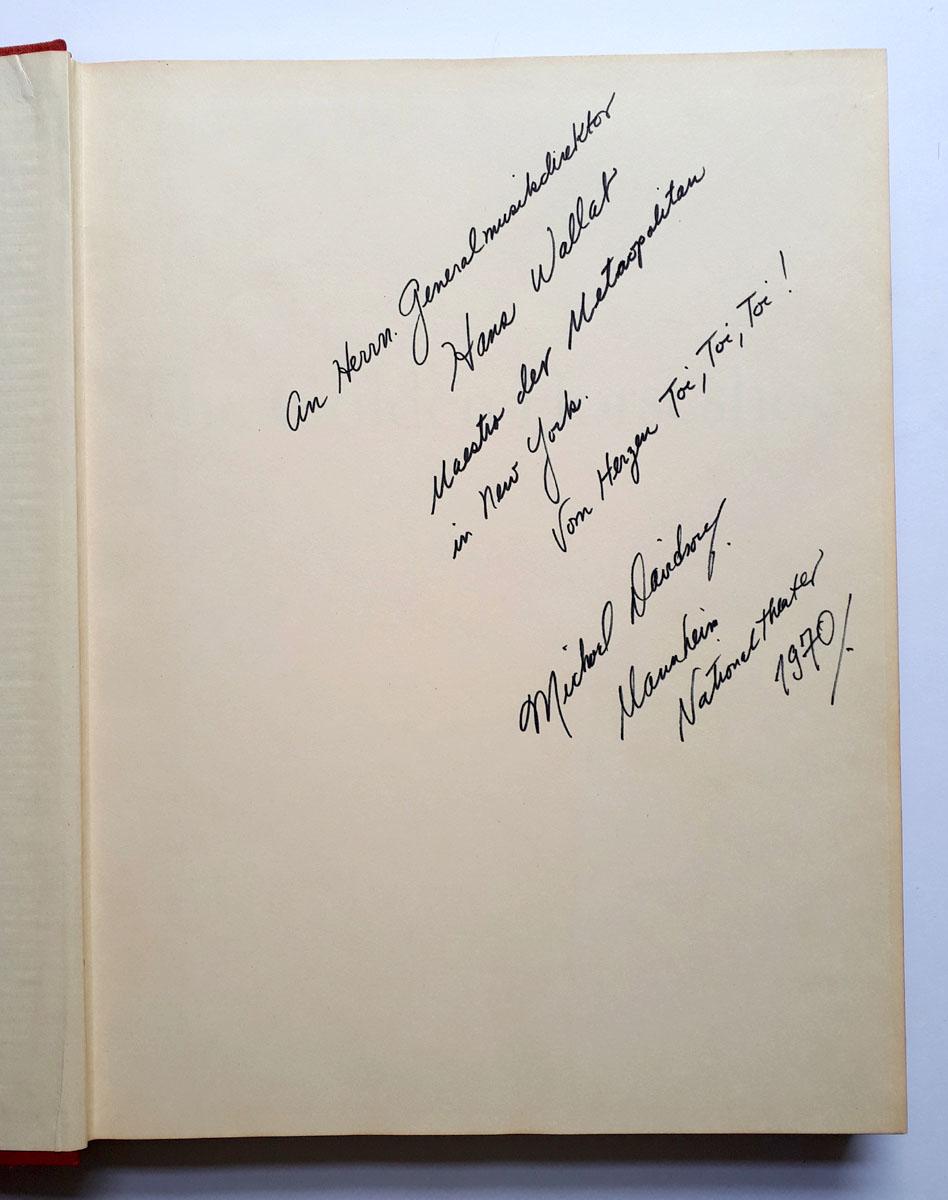 An Herrn. Generalmusikdirektor
Hans Wallat
Maestro der Metropolitan
in New York.
Vom Herzen Toi, Toi, Toi!
Michael Davidson.
Mannheim
Nationaltheater
1970/.